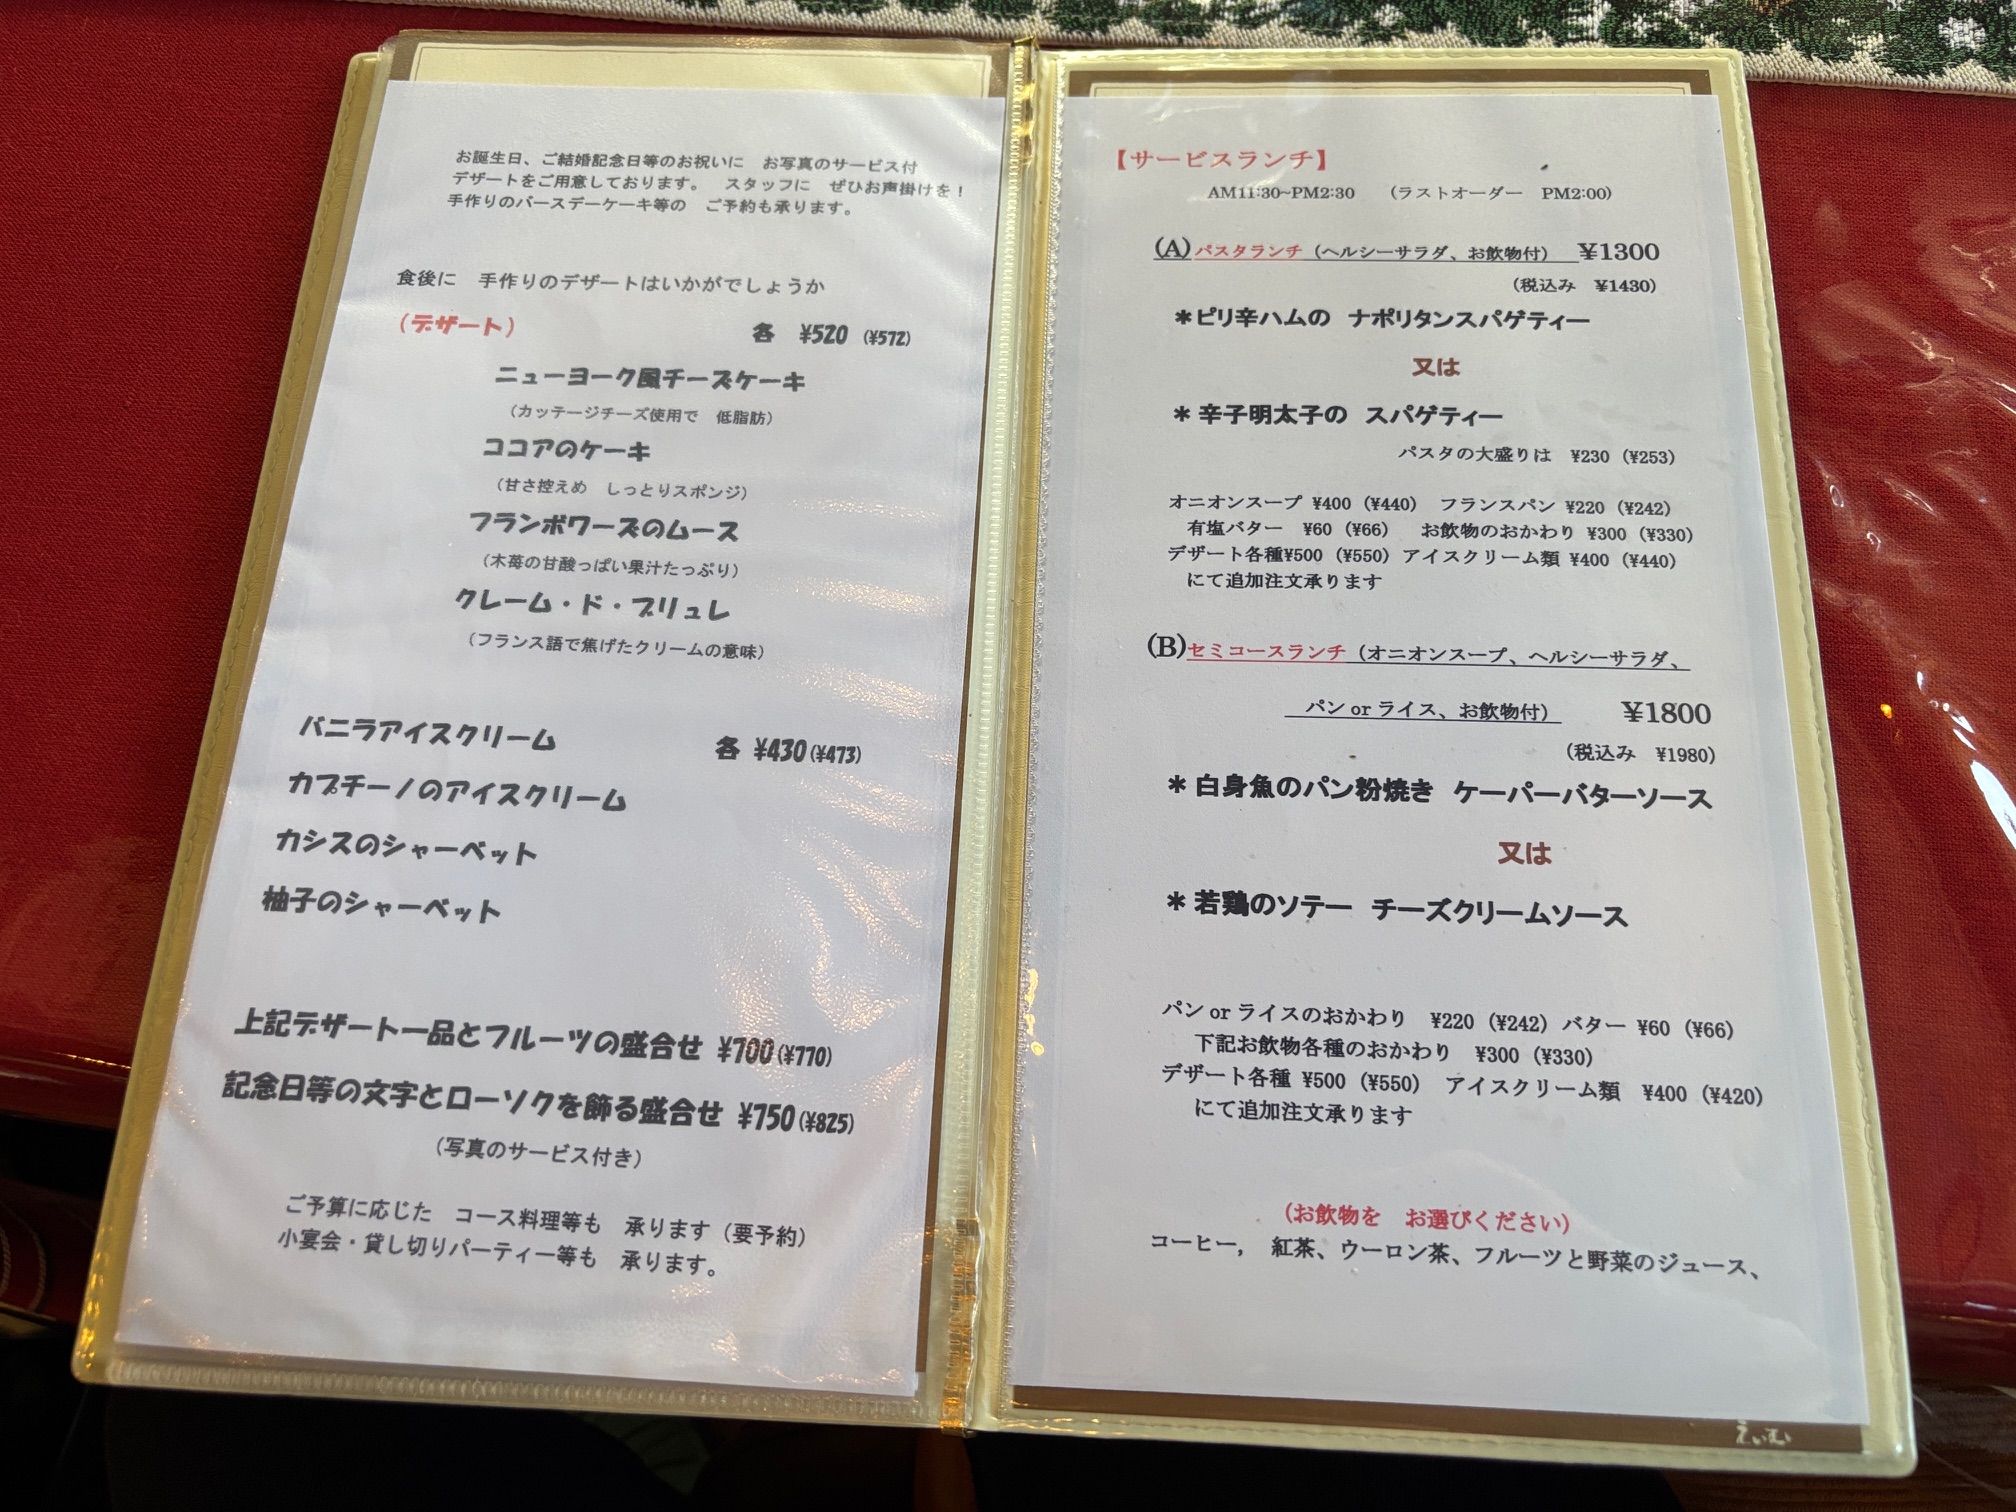 お誕生日、ご結婚記念日等のお祝いに　お写真のサービス付
デザートをご用意しております。　スタッフに　ぜひお声掛けを！
手作りのバースデーケーキ等の　ご予約も承ります。
食後に　手作りのデザートはいかがでしょうか
（デザート）　各　¥520（¥572）
ニューヨーク風チーズケーキ
（カッテージチーズ使用で　低脂肪）
ココアのケーキ
（甘さ控えめ　しっとりスポンジ）
フランボワーズのムース
（木苺の甘酸っぱい果汁たっぷり）
クレーム・ド・ブリュレ
（フランス語で焦げたクリームの意味）
バニラアイスクリーム　各 ¥430（¥473）
カプチーノのアイスクリーム
カシスのシャーベット
柚子のシャーベット
上記デザート一品とフルーツの盛合せ ¥700（¥770）
記念日等の文字とローソクを飾る盛合せ ¥750（¥825）
（写真のサービス付き）
ご予算に応じた　コース料理等も　承ります（要予約）
小宴会・貸し切りパーティー等も　承ります。
【サービスランチ】
AM11:30~PM2:30　（ラストオーダー　PM2:00）
(A)パスタランチ（ヘルシーサラダ、お飲物付）　¥1300
（税込み　¥1430）
＊ピリ辛ハムの　ナポリタンスパゲティー
又は
＊辛子明太子の　スパゲティー
パスタの大盛りは　¥230（¥253）
オニオンスープ ¥400（¥440）　フランスパン ¥220（¥242）
有塩バター　¥60（¥66）　お飲物のおかわり ¥300（¥330）
デザート各種¥500（¥550）アイスクリーム類 ¥400（¥440）
にて追加注文承ります
(B)セミコースランチ（オニオンスープ、ヘルシーサラダ、
パン or ライス、お飲物付）　¥1800
（税込み　¥1980）
＊白身魚のパン粉焼き　ケーパーバターソース
又は
＊若鶏のソテー　チーズクリームソース
パン or ライスのおかわり　¥220（¥242）バター ¥60（¥66）
下記お飲物各種のおかわり　¥300（¥330）
デザート各種 ¥500（¥550）　アイスクリーム類　¥400（¥420）
にて追加注文承ります
（お飲物を　お選びください）
コーヒー,　紅茶、ウーロン茶、フルーツと野菜のジュース、
えいむ